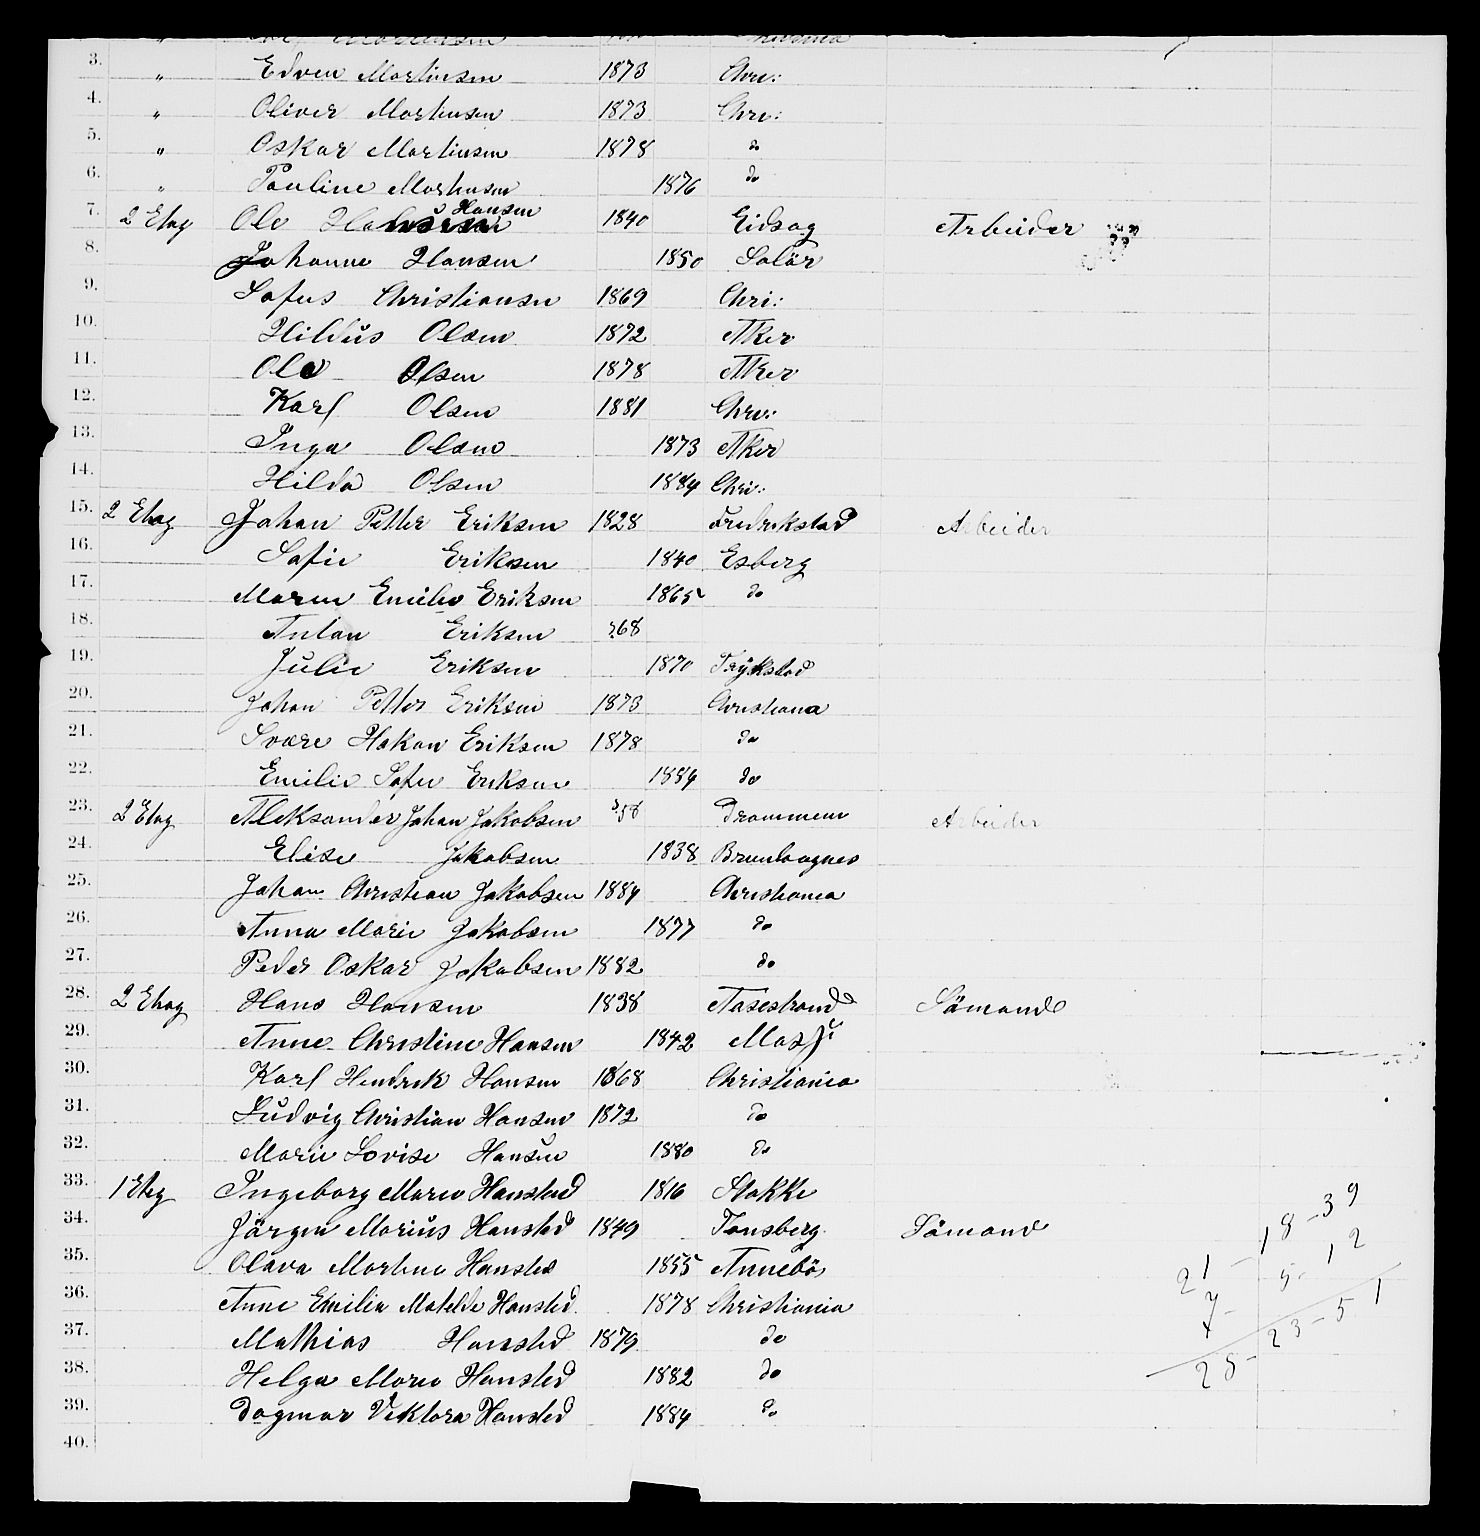 3. „ Edven Martinsen 1873 Chri:
4. „ Oliver Martinsen 1873 Chri:
5. „ Oskar Martinsen 1878 do
6. „ Pauline Martinsen 1876 do
7. 2 Etag Ole Hansen 1840 Eidsog Arbeider
8. Johanne Hansen 1850 Solör
9. Sofus Christiansen 1869 Chri:
10. Hildus Olsen 1872 Aker
11. Ole Olsen 1878 Aker
12. Karl Olsen 1881 Chri:
13. Inga Olsen 1873 Aker
14. Hilda Olsen 1884 Chri:
15. 2 Etag Johan Petter Eriksen 1828 Fredrikstad Arbeider
16. Sofie Eriksen 1840 Esberg
17. Maren Emilie Eriksen 1865 do
18. Anton Eriksen 68
19. Julie Eriksen 1870 Trykstad
20. Johan Petter Eriksen 1873 Christiana
21. Svære Hakon Eriksen 1878 do
22. Emilie Sofie Eriksen 1884 do
23. 2 Etag Aleksander Johan Jakobsen 58 Drammen Arbeider
24. Elise Jakobsen 1838 Brunlaagnes
25. Johan Christian Jakobsen 1884 Christiania
26. Anna Marie Jakobsen 1877 do
27. Peder Oskar Jakobsen 1882 do
28. 2 Etag Hans Hansen 1838 Aasestrand Sömand
29. Anne Christine Hansen 1842 Moss
30. Karl Hendrik Hansen 1868 Christiania
31. Ludvig Christian Hansen 1872 do
32. Marie Lovise Hansen 1880 do
33. 1 Etag Ingeborg Marie Hansted 1816 Stokke
34. Jörgen Marius Hansted 1849 Tonsberg Sömand
35. Olava Martine Hansted 1855 Annebö
36. Anne Emilie Matelde Hansted 1878 Christiania
37. Mathias Hansted 1879 do
38. Helga Marie Hansted 1882 do
39. Dagmar Viktora Hansted 1884 do
40.
18-39
21- 5-12
7-
23-51
28-